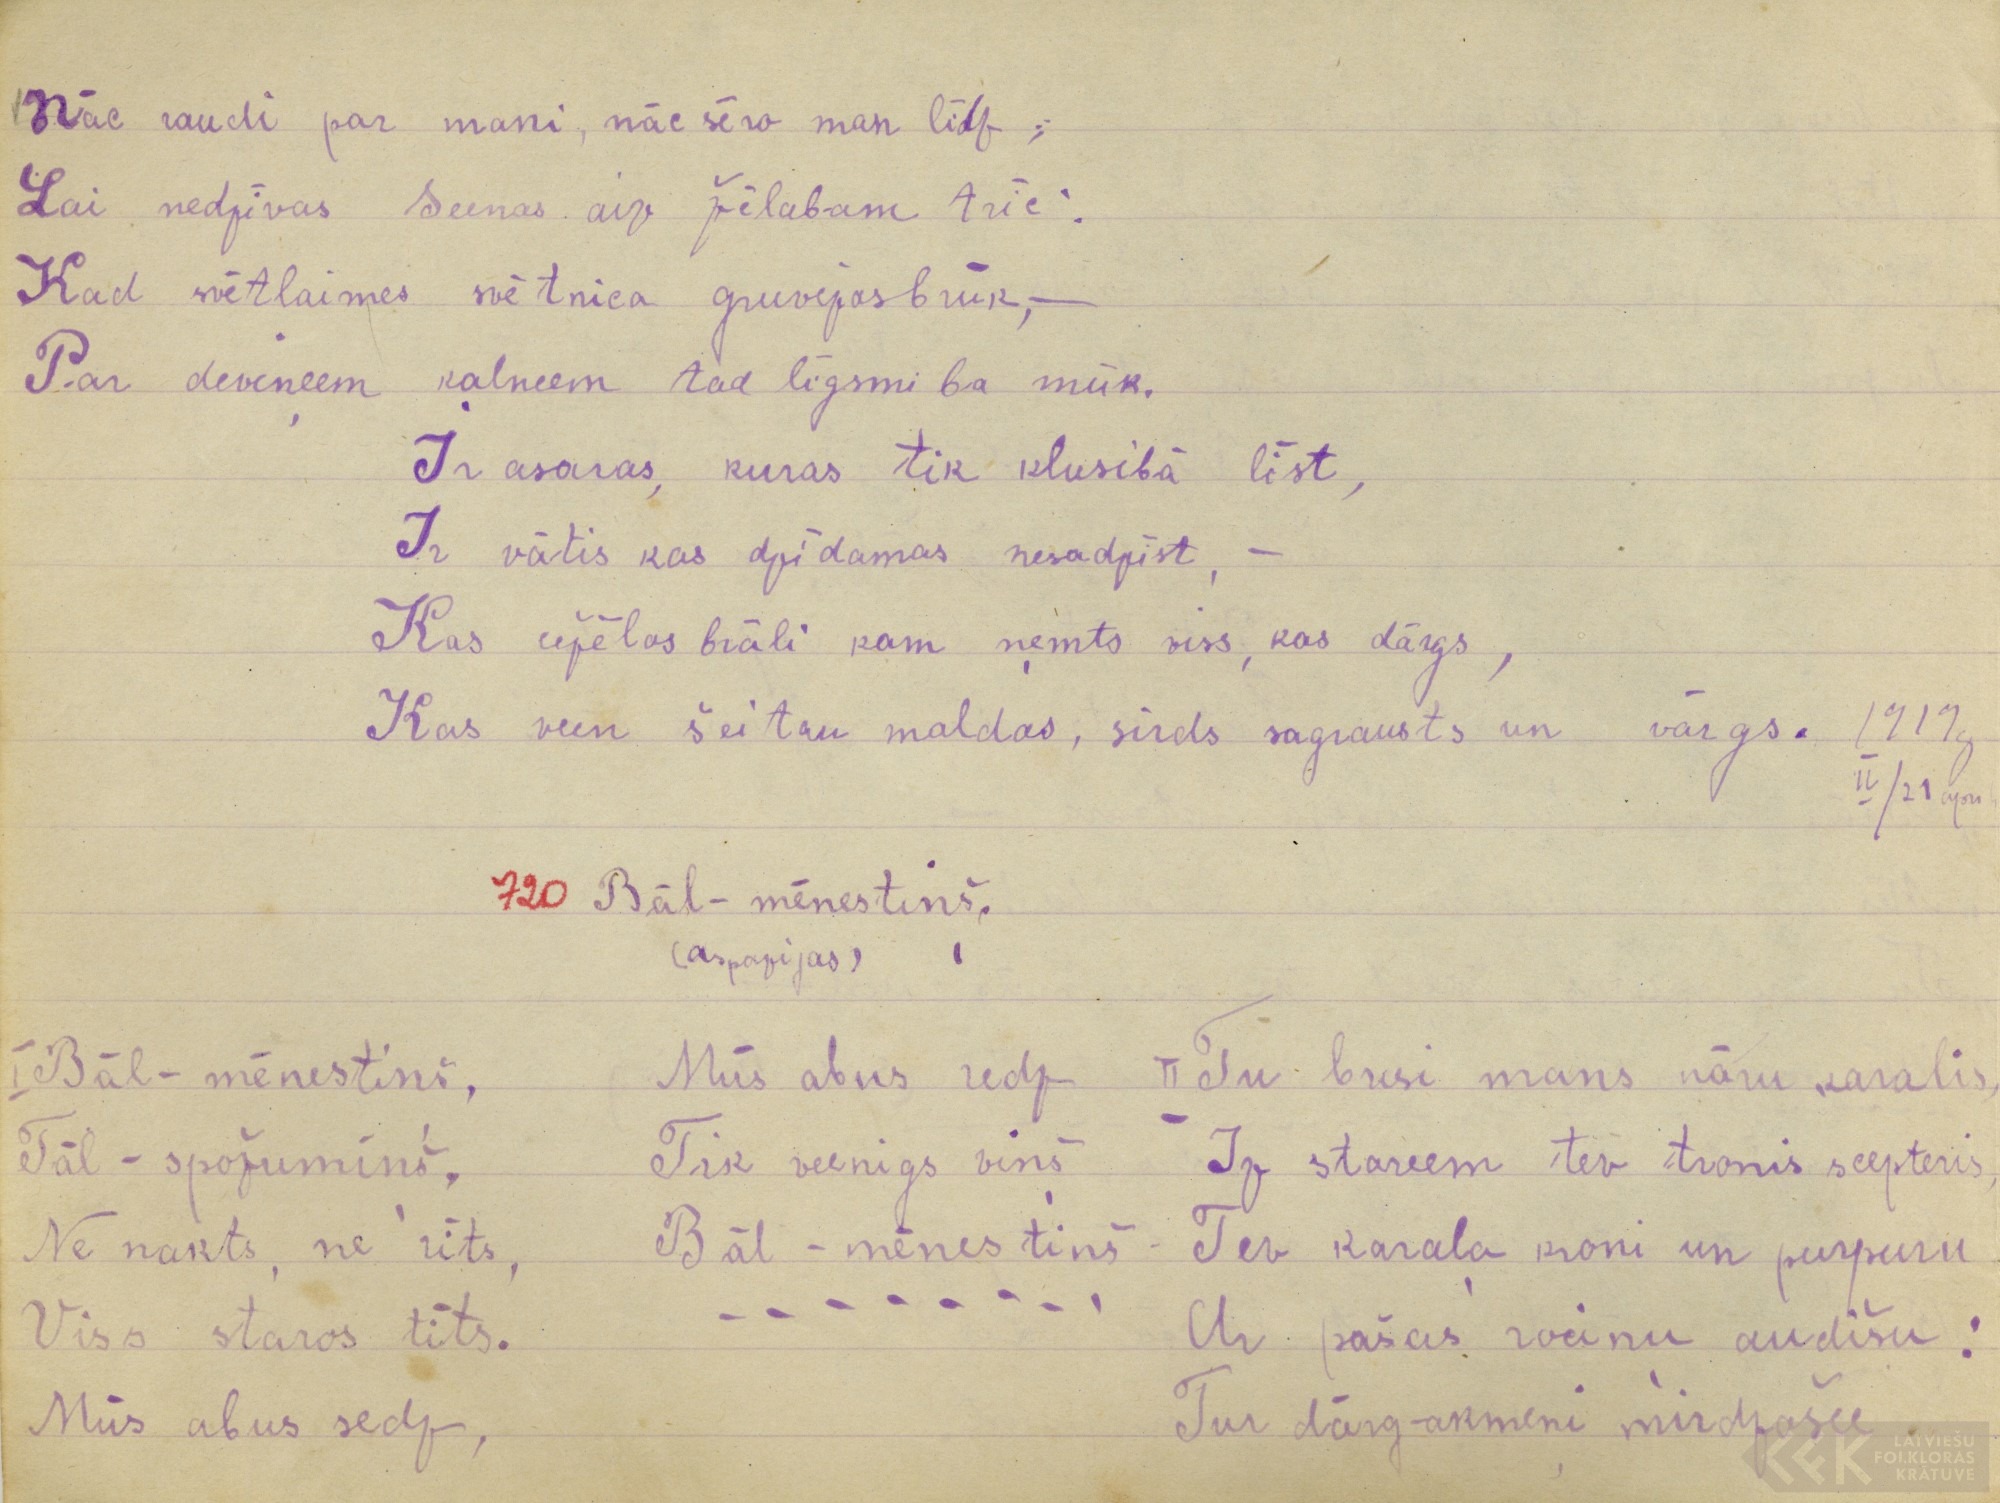 Nāc raudi par mani, nāc sēro man līdz;
Lai nedzīvas Seenas aiz žēlabam trīc.
Kad svētlaimes svētnica gruvežos brūk,—
Par deveņeem kalneem tad līgsmiba mūk.
Ir asaras, kuras tik klusibā līst,
Ir vātis kas dzīdamas nesadzīst, —
Kas užēlos brāli kam ņemts viss, kas dārgs,
Kas veen šeitau maldas, sirds sagrausts un vārgs. 1919g
II/21
720 Bāl-mēnestiņš.
(aspazijas)
I Bāl-mēnestiņš,
Tāl-spožumiņš,
Ne nakts, ne rīts,
Viss staros tīts.
Mūs abus sedz,
Mūs abus redz
Tik veenigs viņš
Bāl-mēnestiņš
II Tu busi mans nāru karalis,
Iz stareem tev tronis scepteris,
Tev karaļa kroni un purpuru
Ar pašas rociņu audišu:
Tur dārg-akmeņi mirdzošee
LATVIEŠU
FOLKLORAS
KRĀTUVE